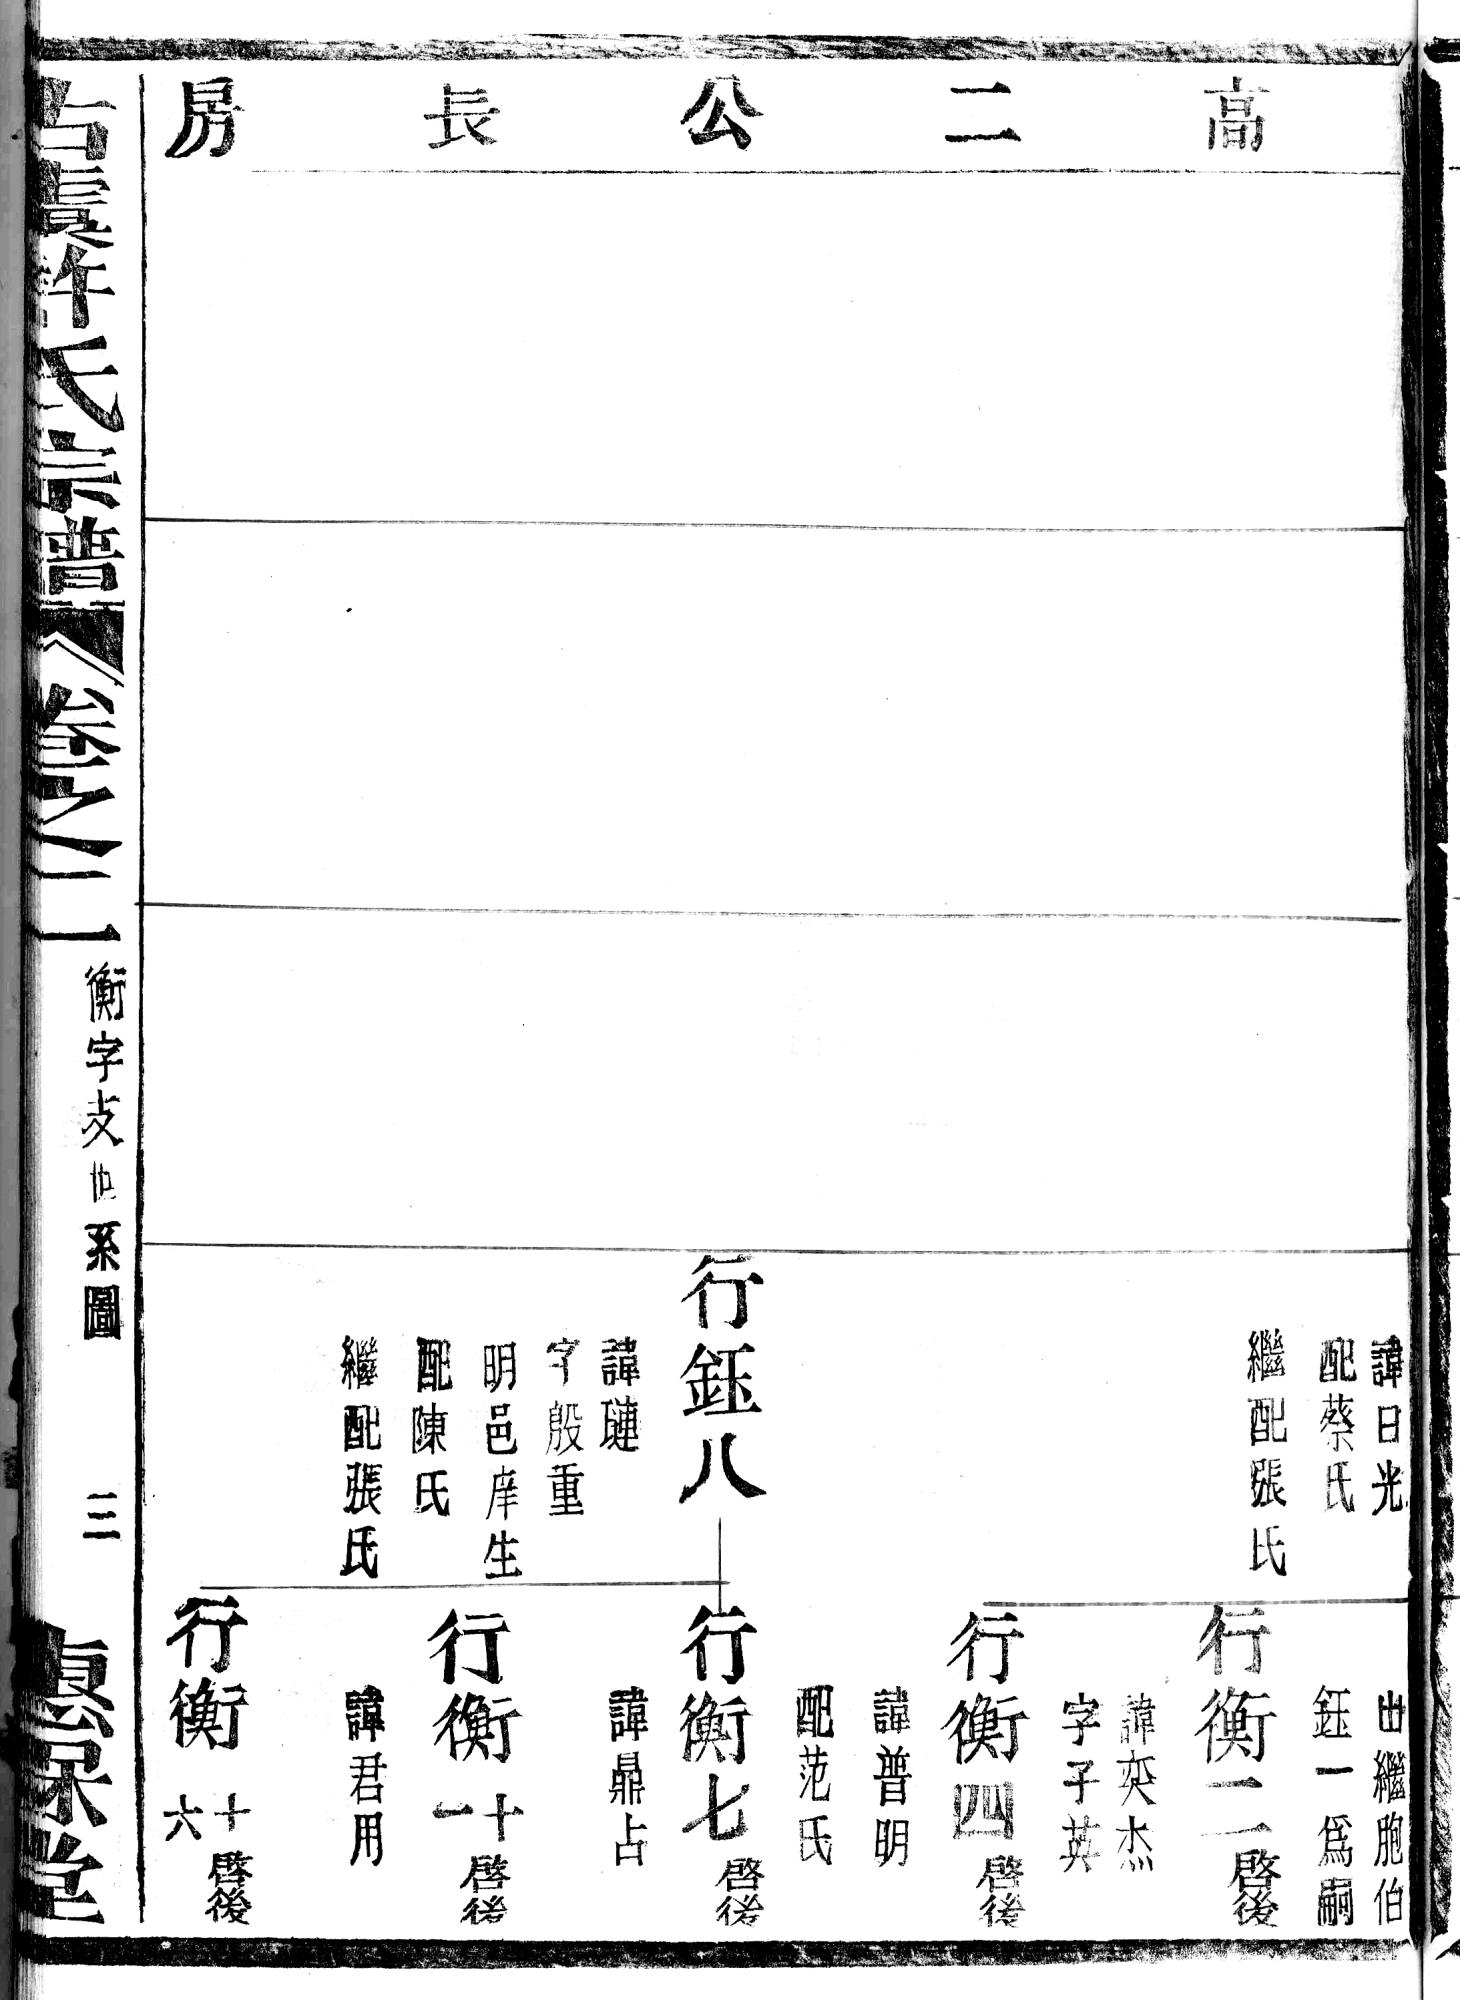 高二公長房
諱日光
配蔡氏
繼配張氏
行鈺八
諱璉
字殷重
明邑庠生
配陳氏
繼配張氏
出繼胞伯
鈺一爲嗣
行衡二 啓後
諱奕杰
字子英
行衡四 啓後
諱普明
配范氏
行衡七 啓後
諱鼎占
行衡十一 啓後
諱君用
行衡十六 啓後
古虞許氏宗譜 卷之二
衡字支世系圖
三
惠保堂